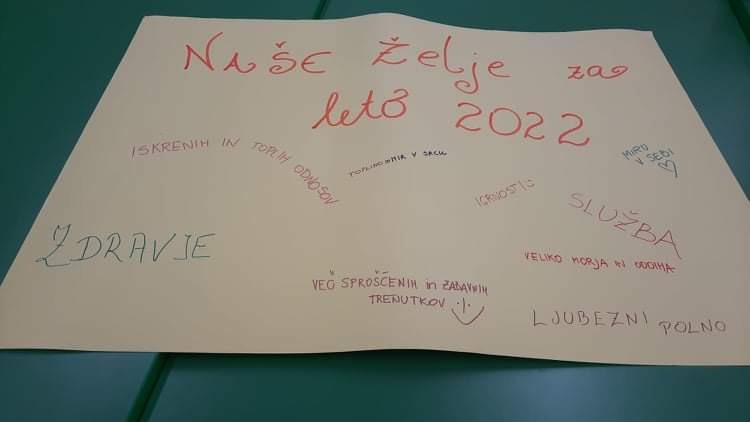 NAŠE želje za
leto 2022
ISKRENIH IN TOPLIH ODNOSOV
TOPLINO MIR V SRCU
MIRU
V SEBI
IGRIVOSTI
SLUŽBA
ZDRAVJE
VELIKO MORJA IN ODDIHA
VEČ SPROŠČENIH in ZABAVNIH
TRENUTKOV
LJUBEZNI POLNO